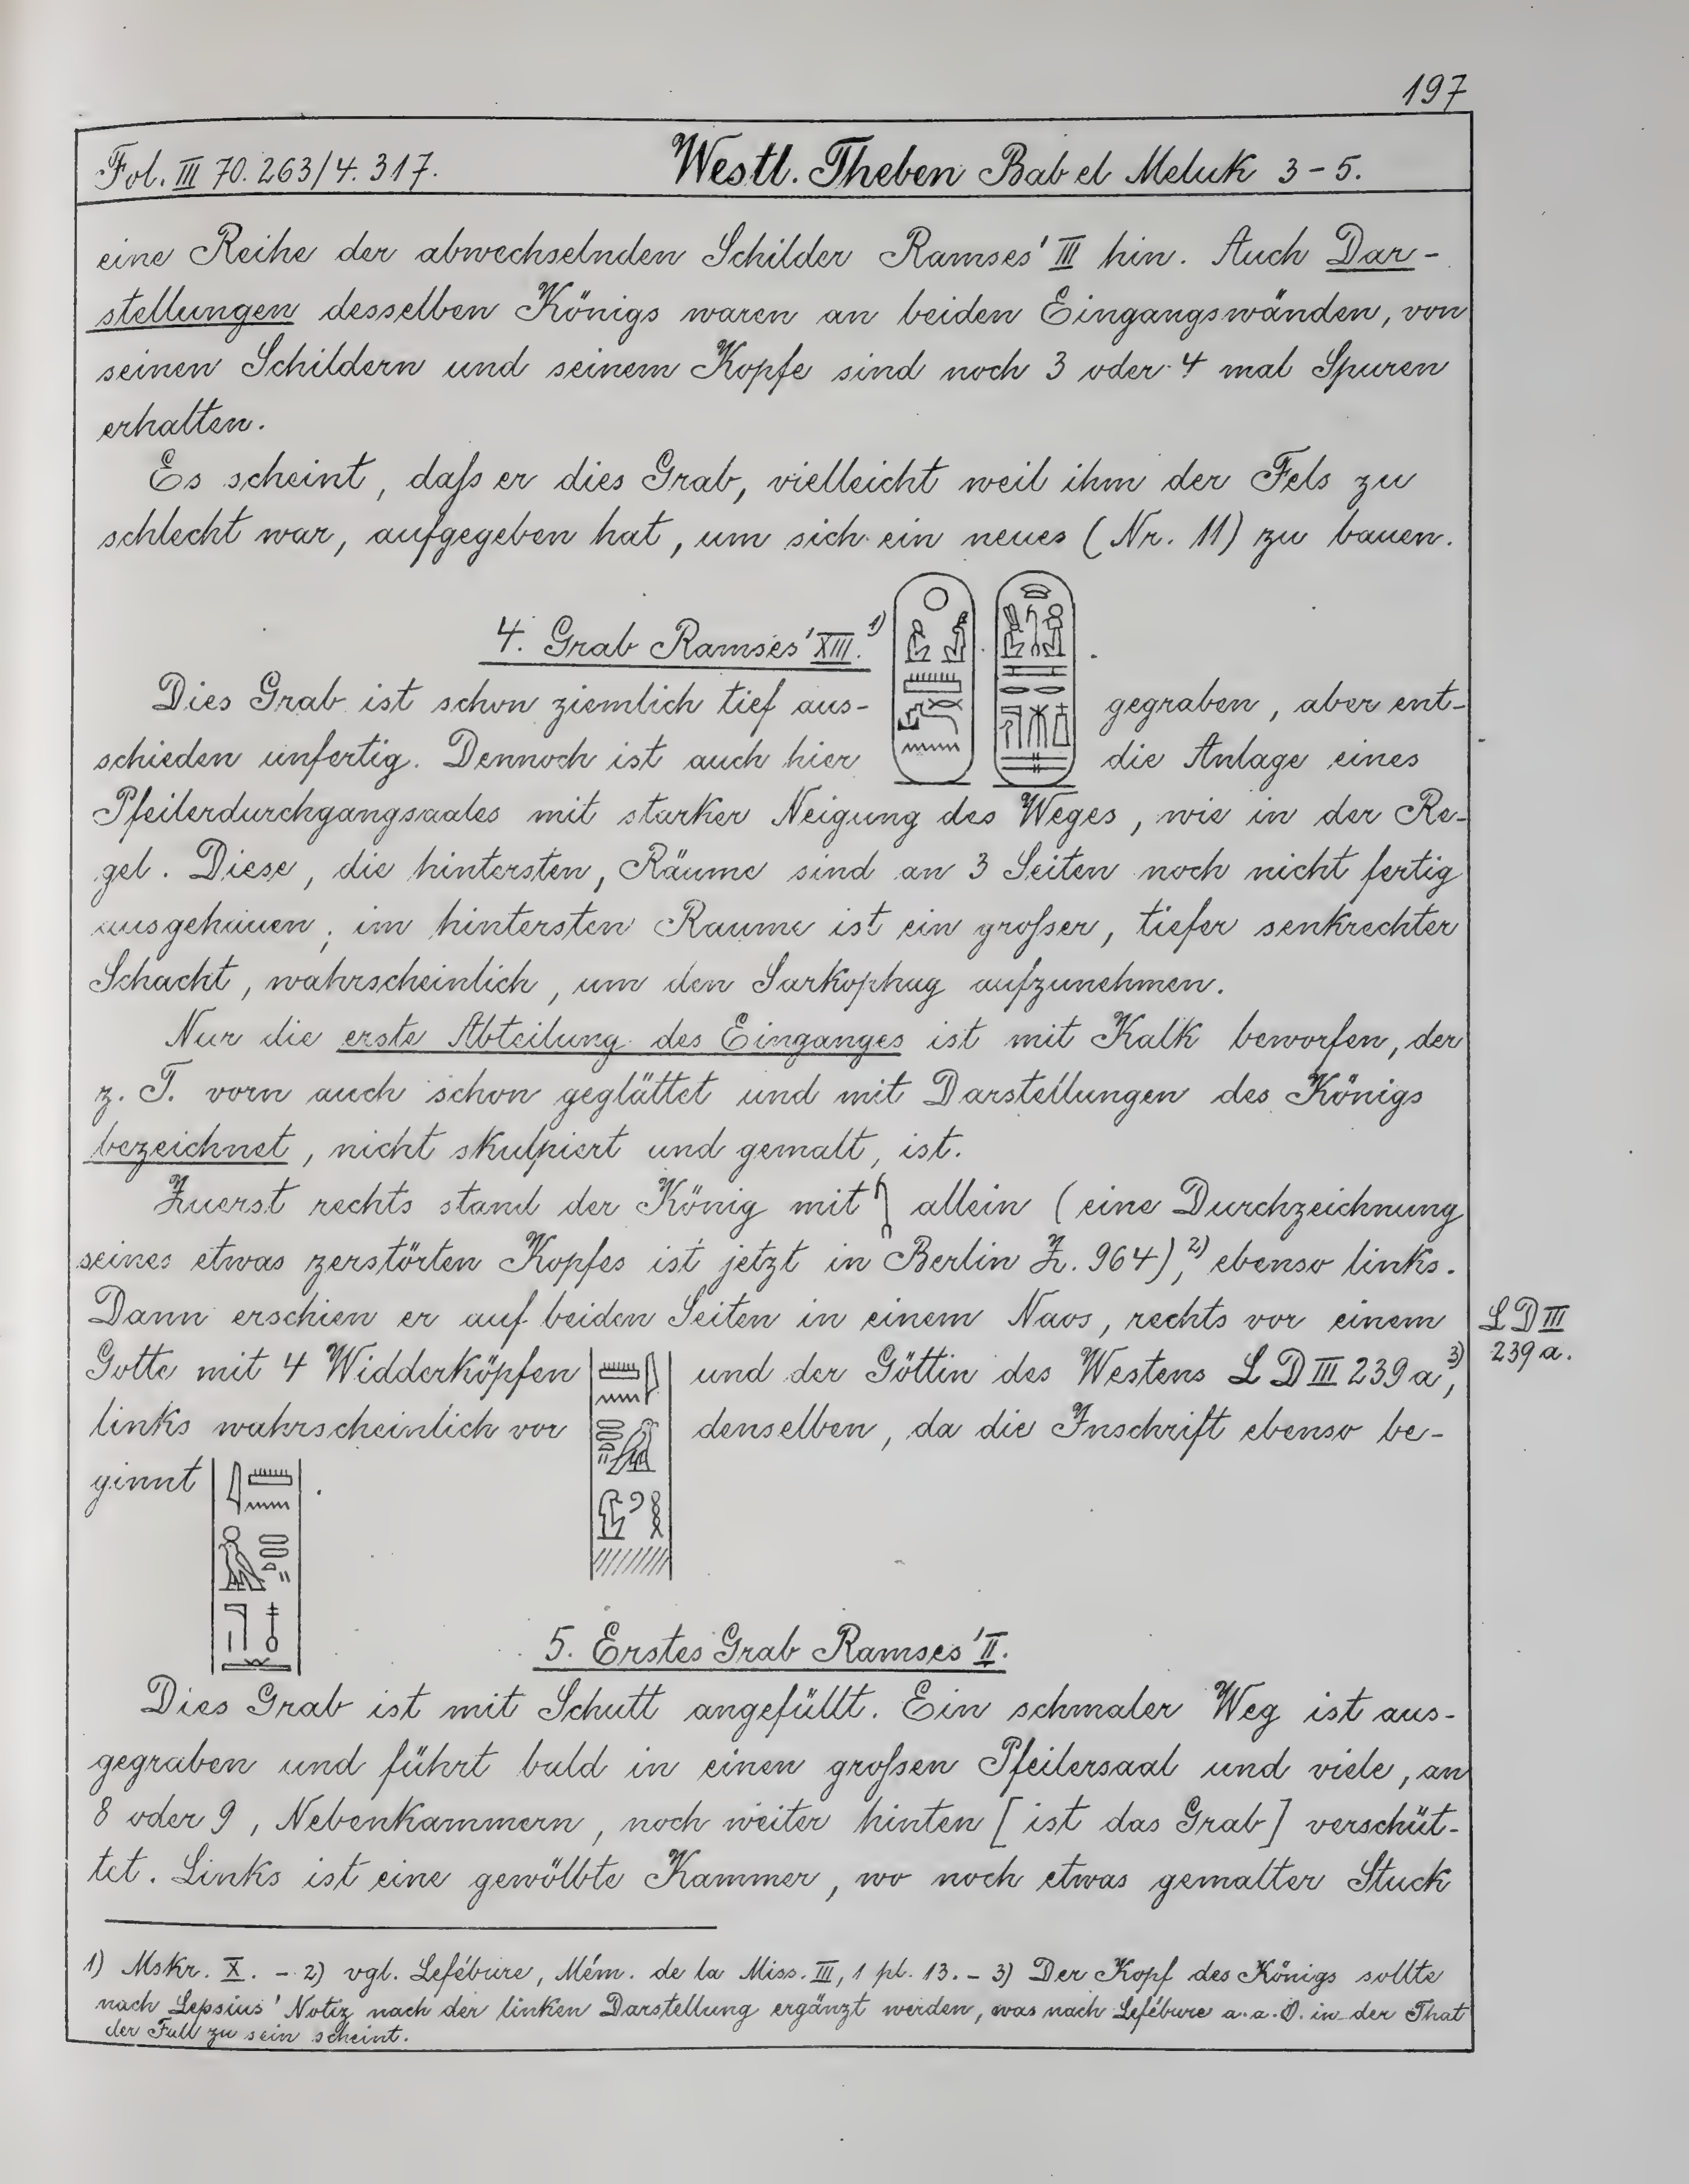 197
Fol. III 70. 263/4. 317. Westl. Theben Bab el Meluk 3-5.
eine Reihe der abwechselnden Schilder Ramses' III hin. Auch Dar-
stellungen desselben Königs waren an beiden Eingangswänden, von
seinen Schildern und seinem Kopfe sind noch 3 oder 4 mal Spuren
erhalten.
Es scheint, daſs er dies Grab, vielleicht weil ihm der Fels zu
schlecht war, aufgegeben hat, um sich ein neues (Nr. 11) zu bauen.
4. Grab Ramses' XIII.¹⁾
Dies Grab ist schon ziemlich tief aus- gegraben, aber ent-
schieden unfertig. Dennoch ist auch hier die Anlage eines
Pfeilerdurchgangsaales mit starker Neigung des Weges, wie in der Re-
gel. Diese, die hintersten, Räume sind an 3 Seiten noch nicht fertig
ausgehauen; im hintersten Raume ist ein groſser, tiefer senkrechter
Schacht, wahrscheinlich, um den Sarkophag aufzunehmen.
Nur die erste Abteilung des Einganges ist mit Kalk beworfen, der
z. T. vorn auch schon geglättet und mit Darstellungen des Königs
bezeichnet, nicht skulpiert und gemalt, ist.
Zuerst rechts stand der König mit allein (eine Durchzeichnung
seines etwas zerstörten Kopfes ist jetzt in Berlin Z. 964),²⁾ ebenso links.
Dann erschien er auf beiden Seiten in einem Naos, rechts vor einem
LD III
239 a.
Gotte mit 4 Widderköpfen und der Göttin des Westens LD III 239 a³⁾,
links wahrscheinlich vor denselben, da die Inschrift ebenso be-
ginnt .
5. Erstes Grab Ramses' II.
Dies Grab ist mit Schutt angefüllt. Ein schmaler Weg ist aus-
gegraben und führt bald in einen groſsen Pfeilersaal und viele, an
8 oder 9, Nebenkammern, noch weiter hinten [ist das Grab] verschüt-
tet. Links ist eine gewölbte Kammer, wo noch etwas gemalter Stuck
1) Mskr. X. - 2) vgl. Lefébure, Mém. de la Miss. III, 1 pl. 13. - 3) Der Kopf des Königs sollte
nach Lepsius' Notiz nach der linken Darstellung ergänzt werden, was nach Lefébure a. a. O. in der That
der Fall zu sein scheint.